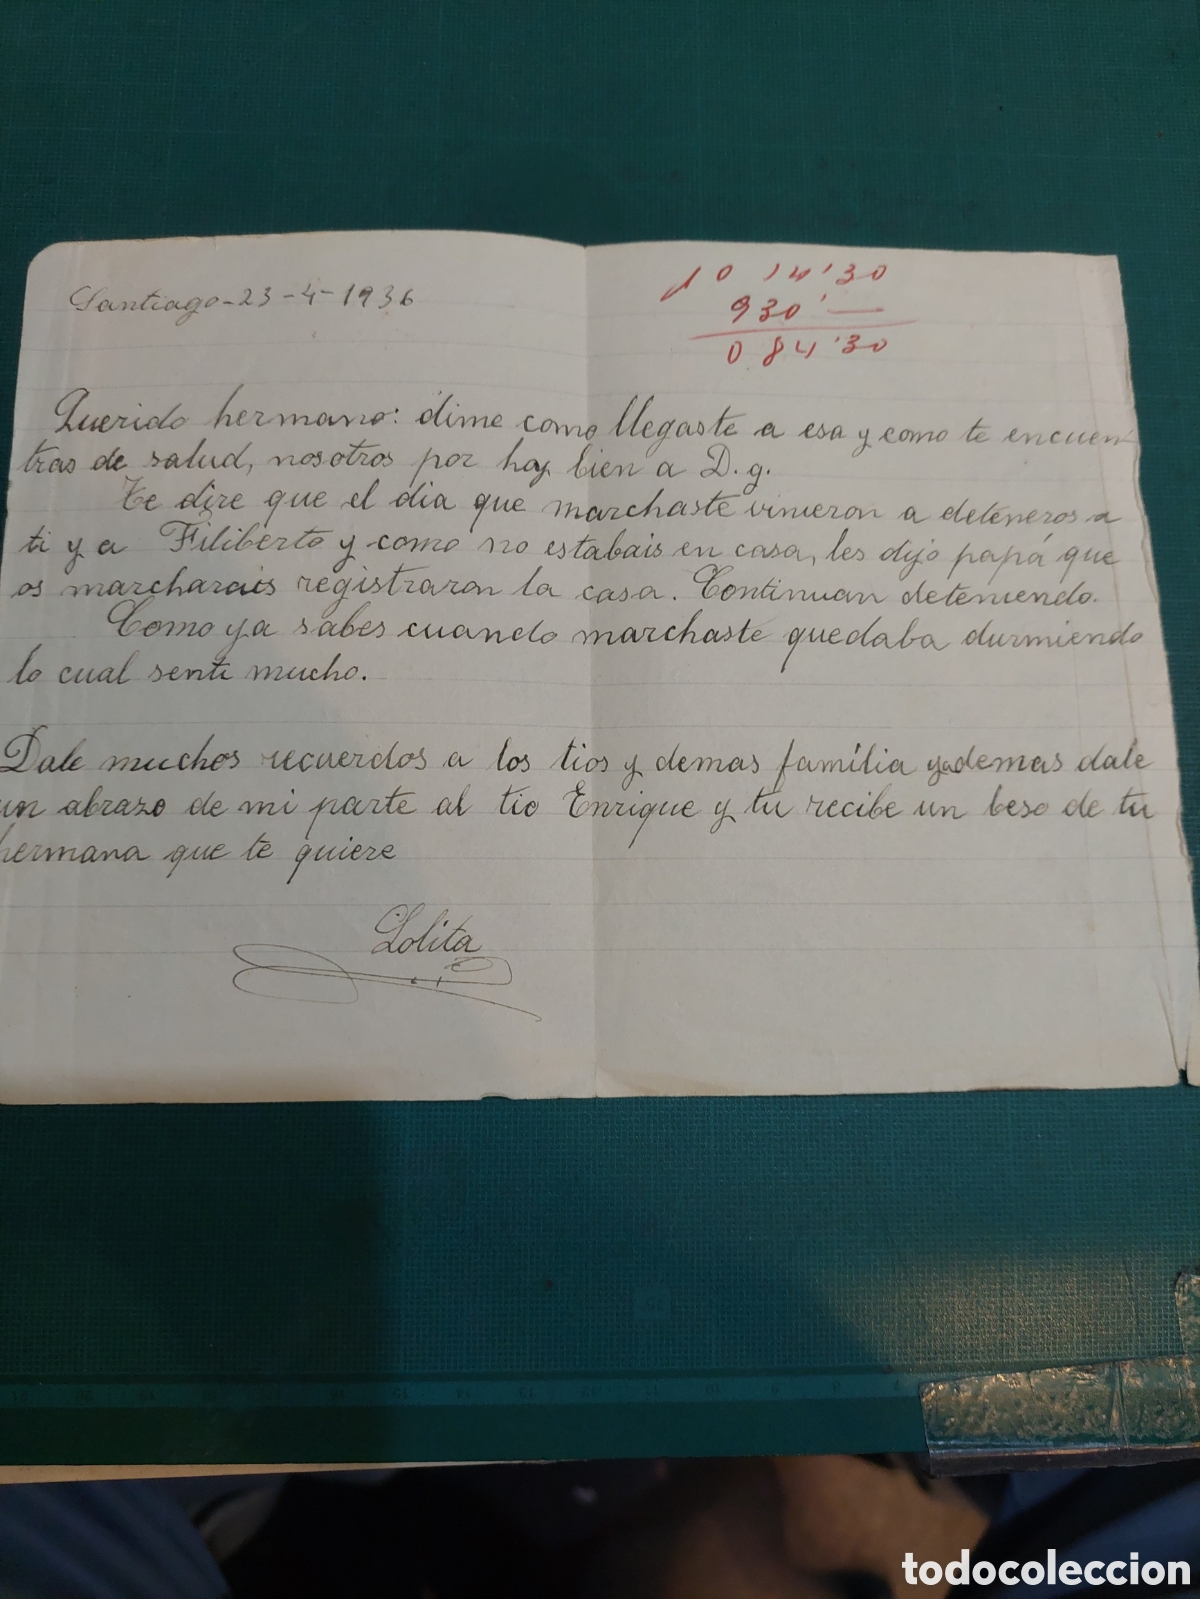 Santiago-23-4-1936
10 14'30
930'—
0 84'30
Querido hermano: dime como llegaste a esa y como te encuen-
tras de salud, nosotros por hoy bien a D. g.
Te dire que el dia que marchaste vinieron a deteneros a
ti y a Filiberto y como no estabais en casa, les dijo papá que
os marcharais registraron la casa. Continuan deteniendo.
Como ya sabes cuando marchaste quedaba durmiendo
lo cual senti mucho.
Dale muchos recuerdos a los tios y demas família y ademas dale
un abrazo de mi parte al tio Enrique y tu recibe un beso de tu
hermana que te quiere
Lolita
todocoleccion